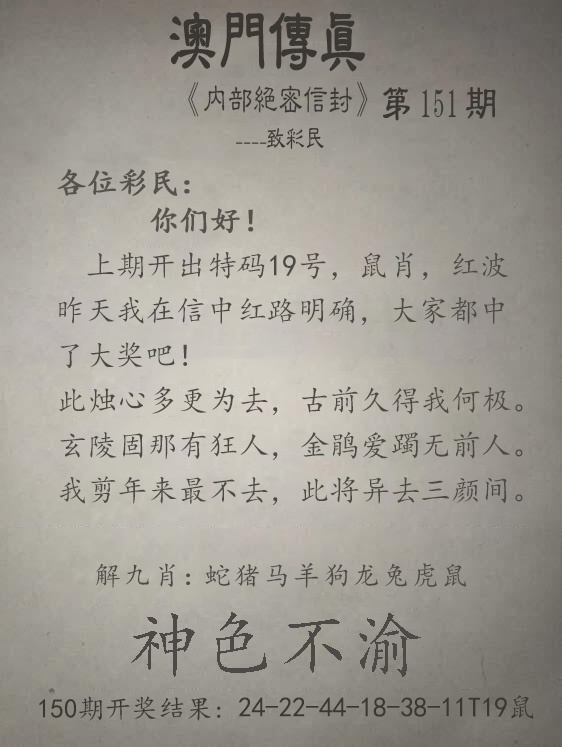 澳門傳眞
《内部絕密信封》第151期
----致彩民
各位彩民：
你们好！
上期开出特码19号，鼠肖，红波
昨天我在信中红路明确，大家都中
了大奖吧！
此烛心多更为去，古前久得我何极。
玄陵固那有狂人，金鹃爱躅无前人。
我剪年来最不去，此将异去三颜间。
解九肖：蛇猪马羊狗龙兔虎鼠
神色不渝
150期开奖结果：24-22-44-18-38-11T19鼠